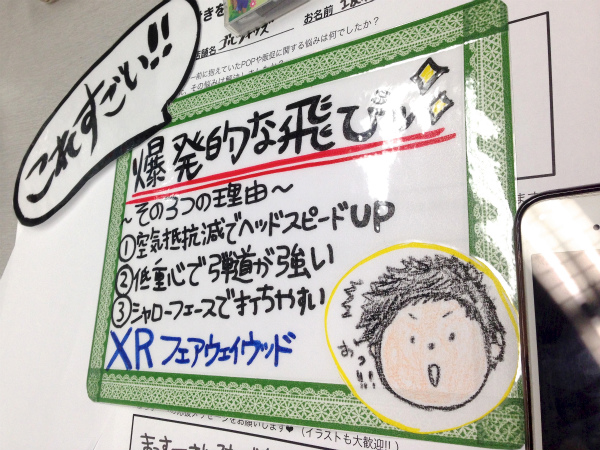 きを
店舗名 ブルウォッズ お名前
前に抱えていたPOPや販促に関する悩みは何でしたか？
これすごい!!
爆発的な飛び!!
～その3つの理由～
①空気抵抗減でヘッドスピードUP
②低重心で弾道が強い
③シャローフェースで打ちやすい
XR フェアウェイウッド
おっ!!
メッセージをお願いします♥（イラストも大歓迎!!）